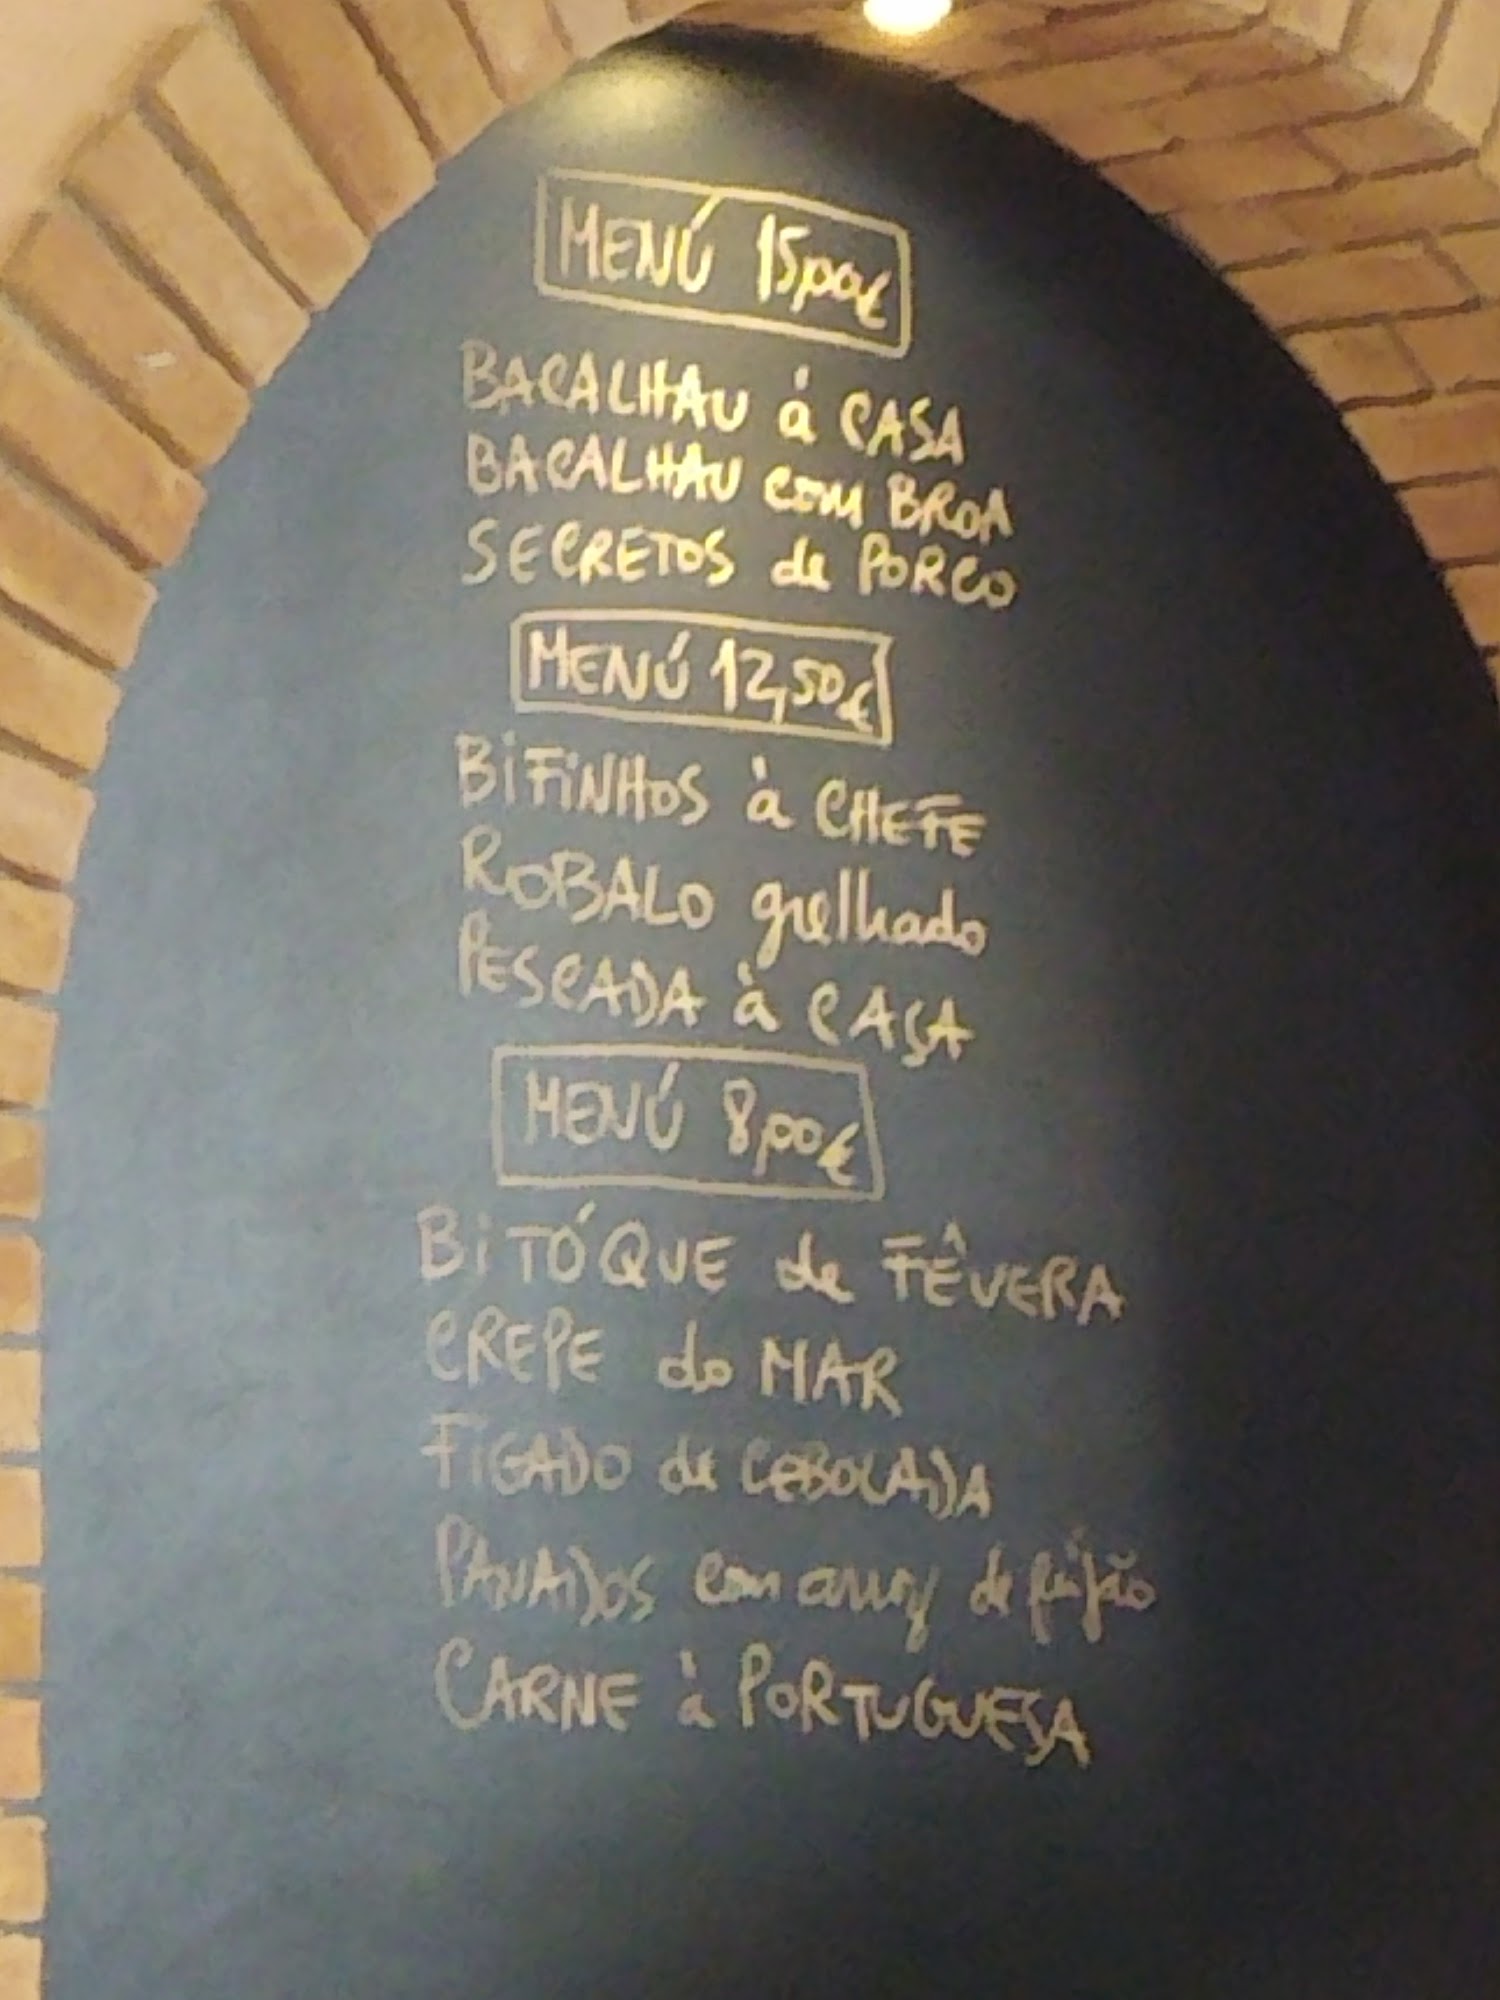 MENÚ 15,00€
BACALHAU á CASA
BACALHAU com BROA
SECRETOS de PORCO
MENÚ 12,50€
BIFINHOS à CHEFE
ROBALO grelhado
PESCADA à CASA
MENÚ 8,00€
BITÓQUE de FÊVERA
CREPE do MAR
FIGADO de CEBOLADA
PANADOS com arroz de feijão
CARNE à PORTUGUESA